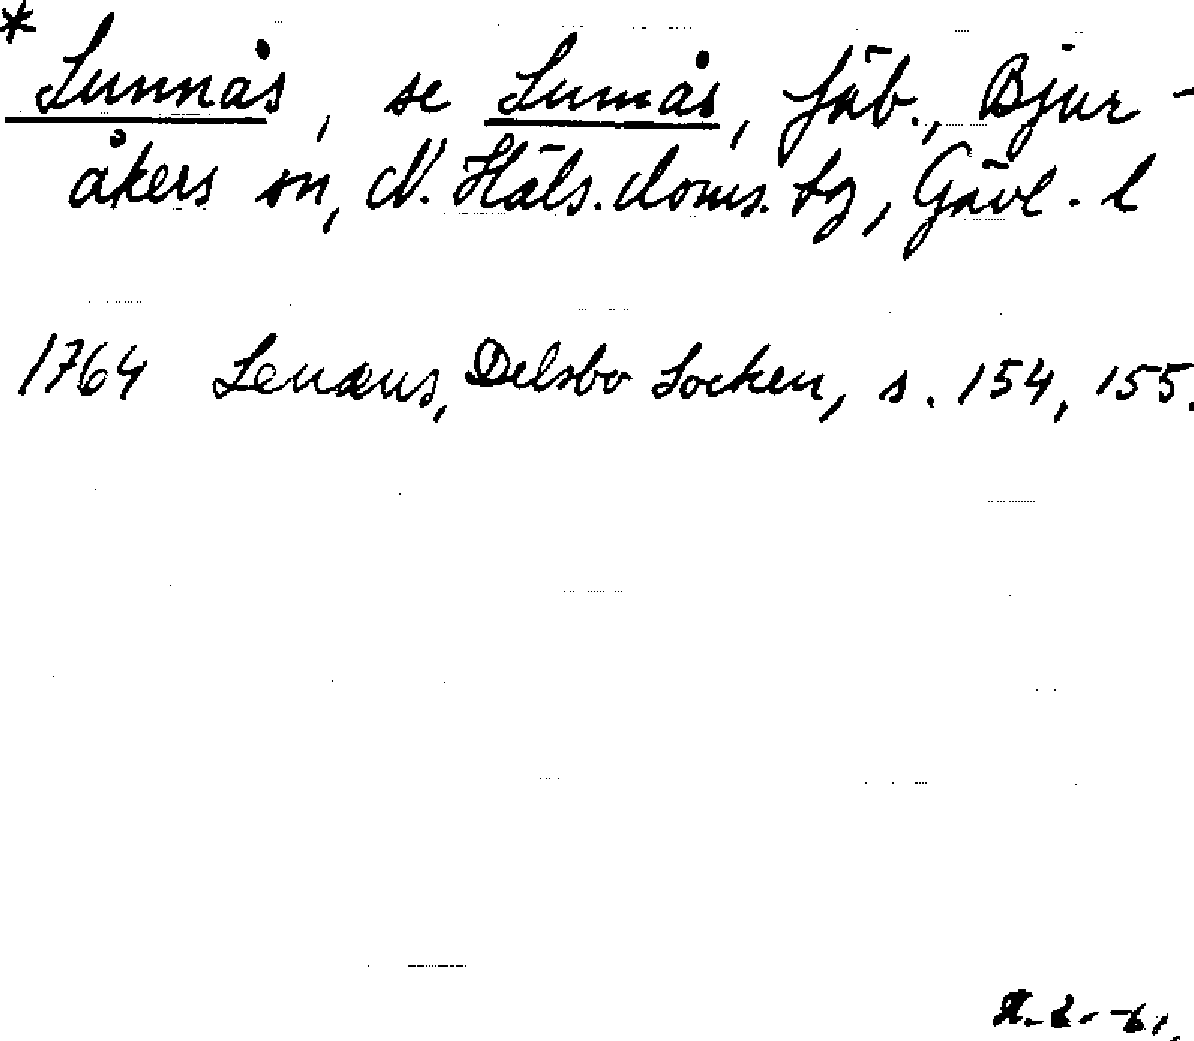 * Lunnås, se Lumås, fäb., Bjur-
åkers sn, N. Häls. doms. tg, Gävl. l
1764 Lenæus, Delsbo Socken, s. 154, 155.